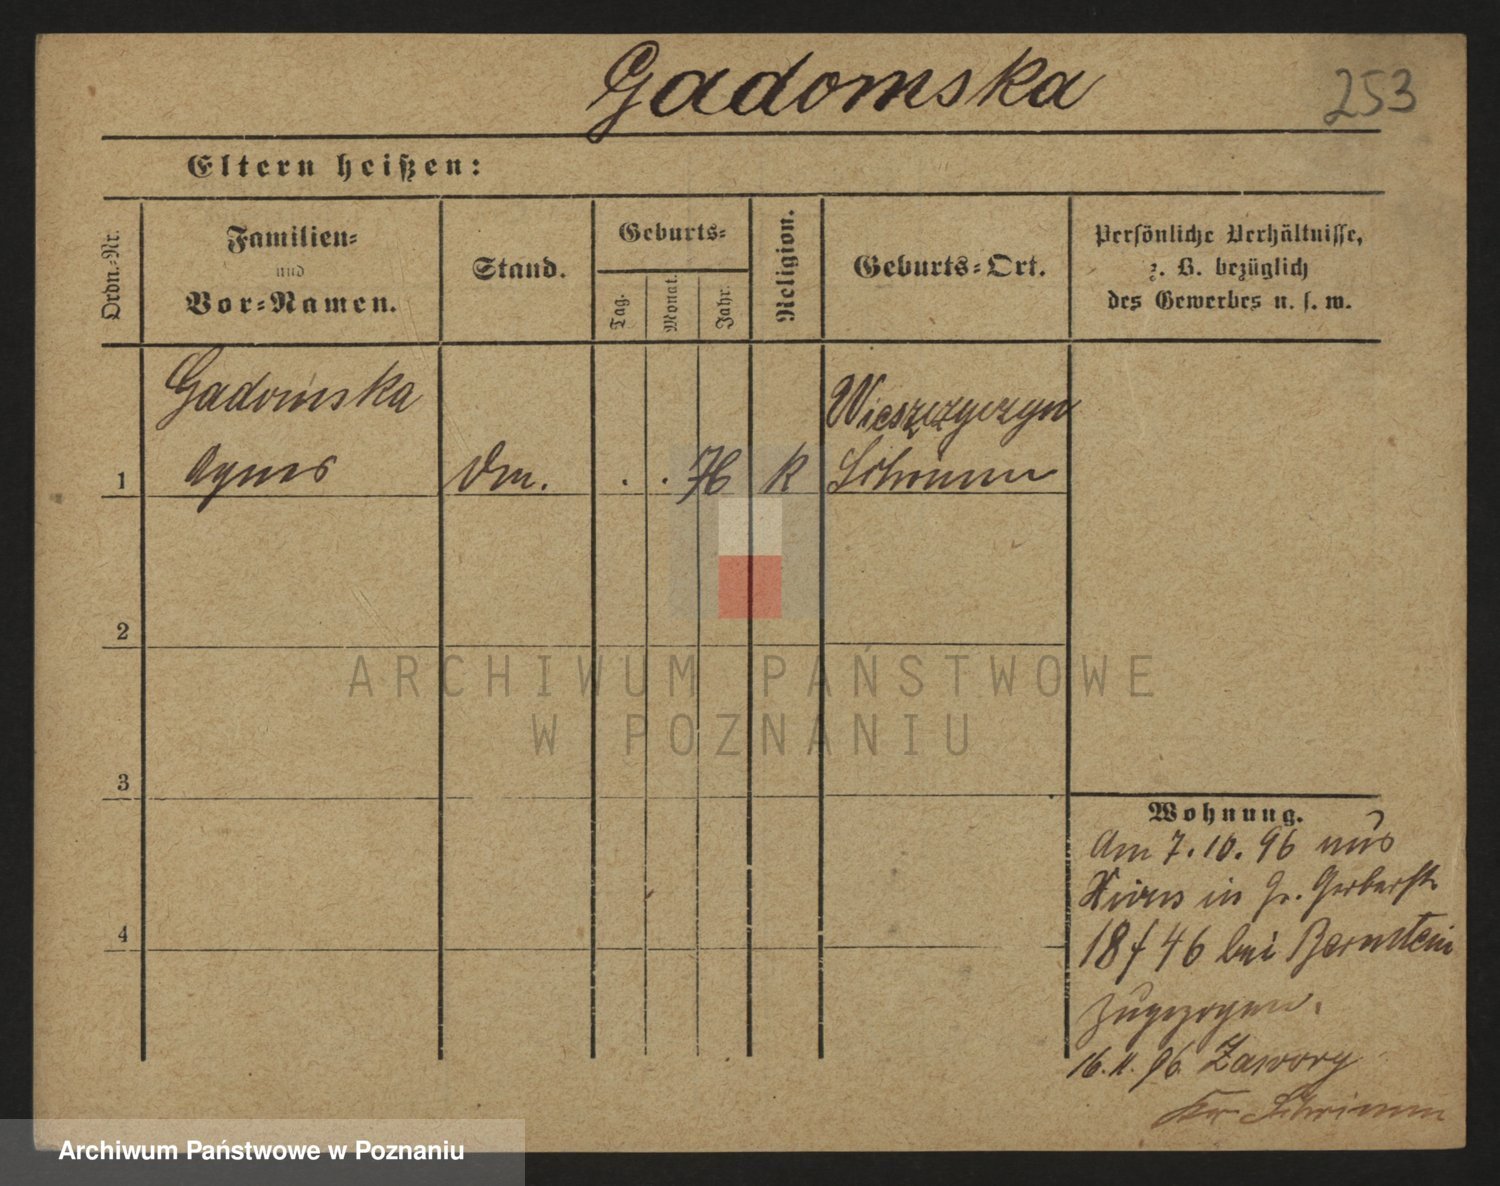 Gadomska
253
Eltern heißen:
Ordn.-Nr.
Familien-
und
Vor-Namen.
Stand.
Geburts-
Tag.
Monat.
Jahr.
Religion.
Geburts-Ort.
Persönliche Verhältnisse,
z. B. bezüglich
des Gewerbes u. s. w.
Gadomska
Agnes
Wieszczyczyn
1
. .
k
Schrimm
2
ARCHIWUM PAŃSTWOWE
W POZNANIU
3
Wohnung.
Am 7.10.96 aus
in Gr. Gerberstr
18 f 46 bei Bernstein
zugezogen.
4
16.11.96 Zawory
Kr Schrimm
Archiwum Państwowe w Poznaniu